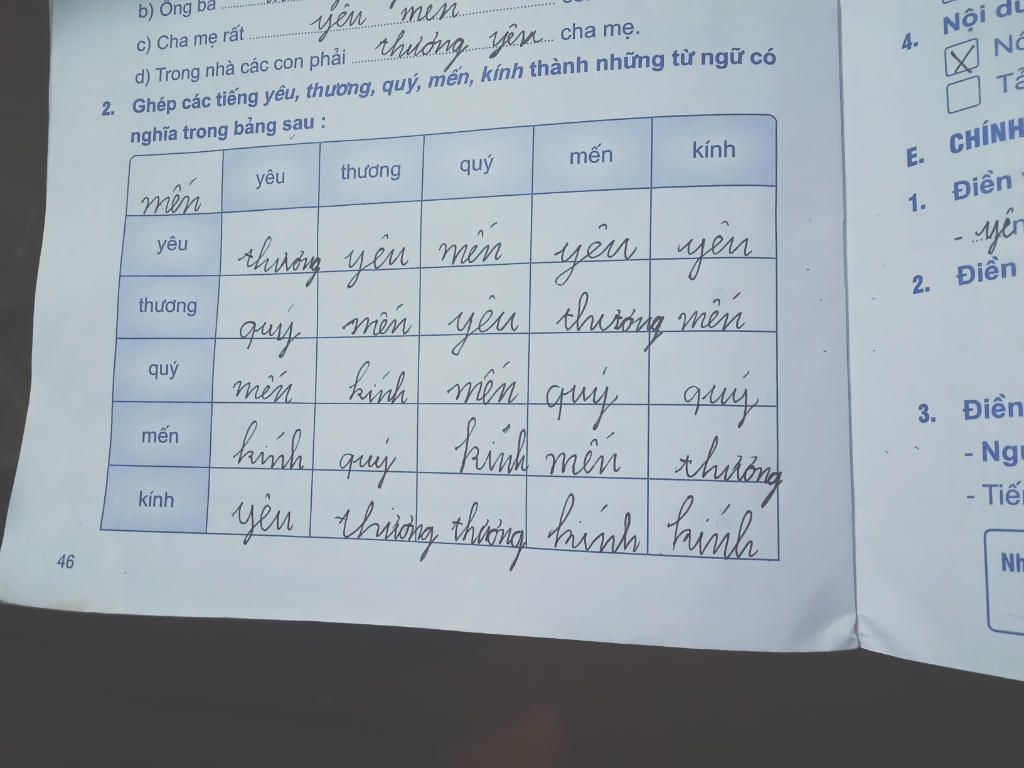 b) Ông bà
c) Cha mẹ rất yêu mến
d) Trong nhà các con phải thương yêu cha mẹ.
2. Ghép các tiếng yêu, thương, quý, mến, kính thành những từ ngữ có
nghĩa trong bảng sau :
mến yêu thương quý mến kính
yêu thương yêu mến yêu yêu
thương quý mến yêu thương mến
quý mến kính mến quý quý
mến kính quý kính mến thương
kính yêu thương thương kính kính
46
4. Nội du
Tả
E. CHÍNH
1. Điền
- yên
2. Điền
3. Điền
- Ngu
- Tiế
Nh